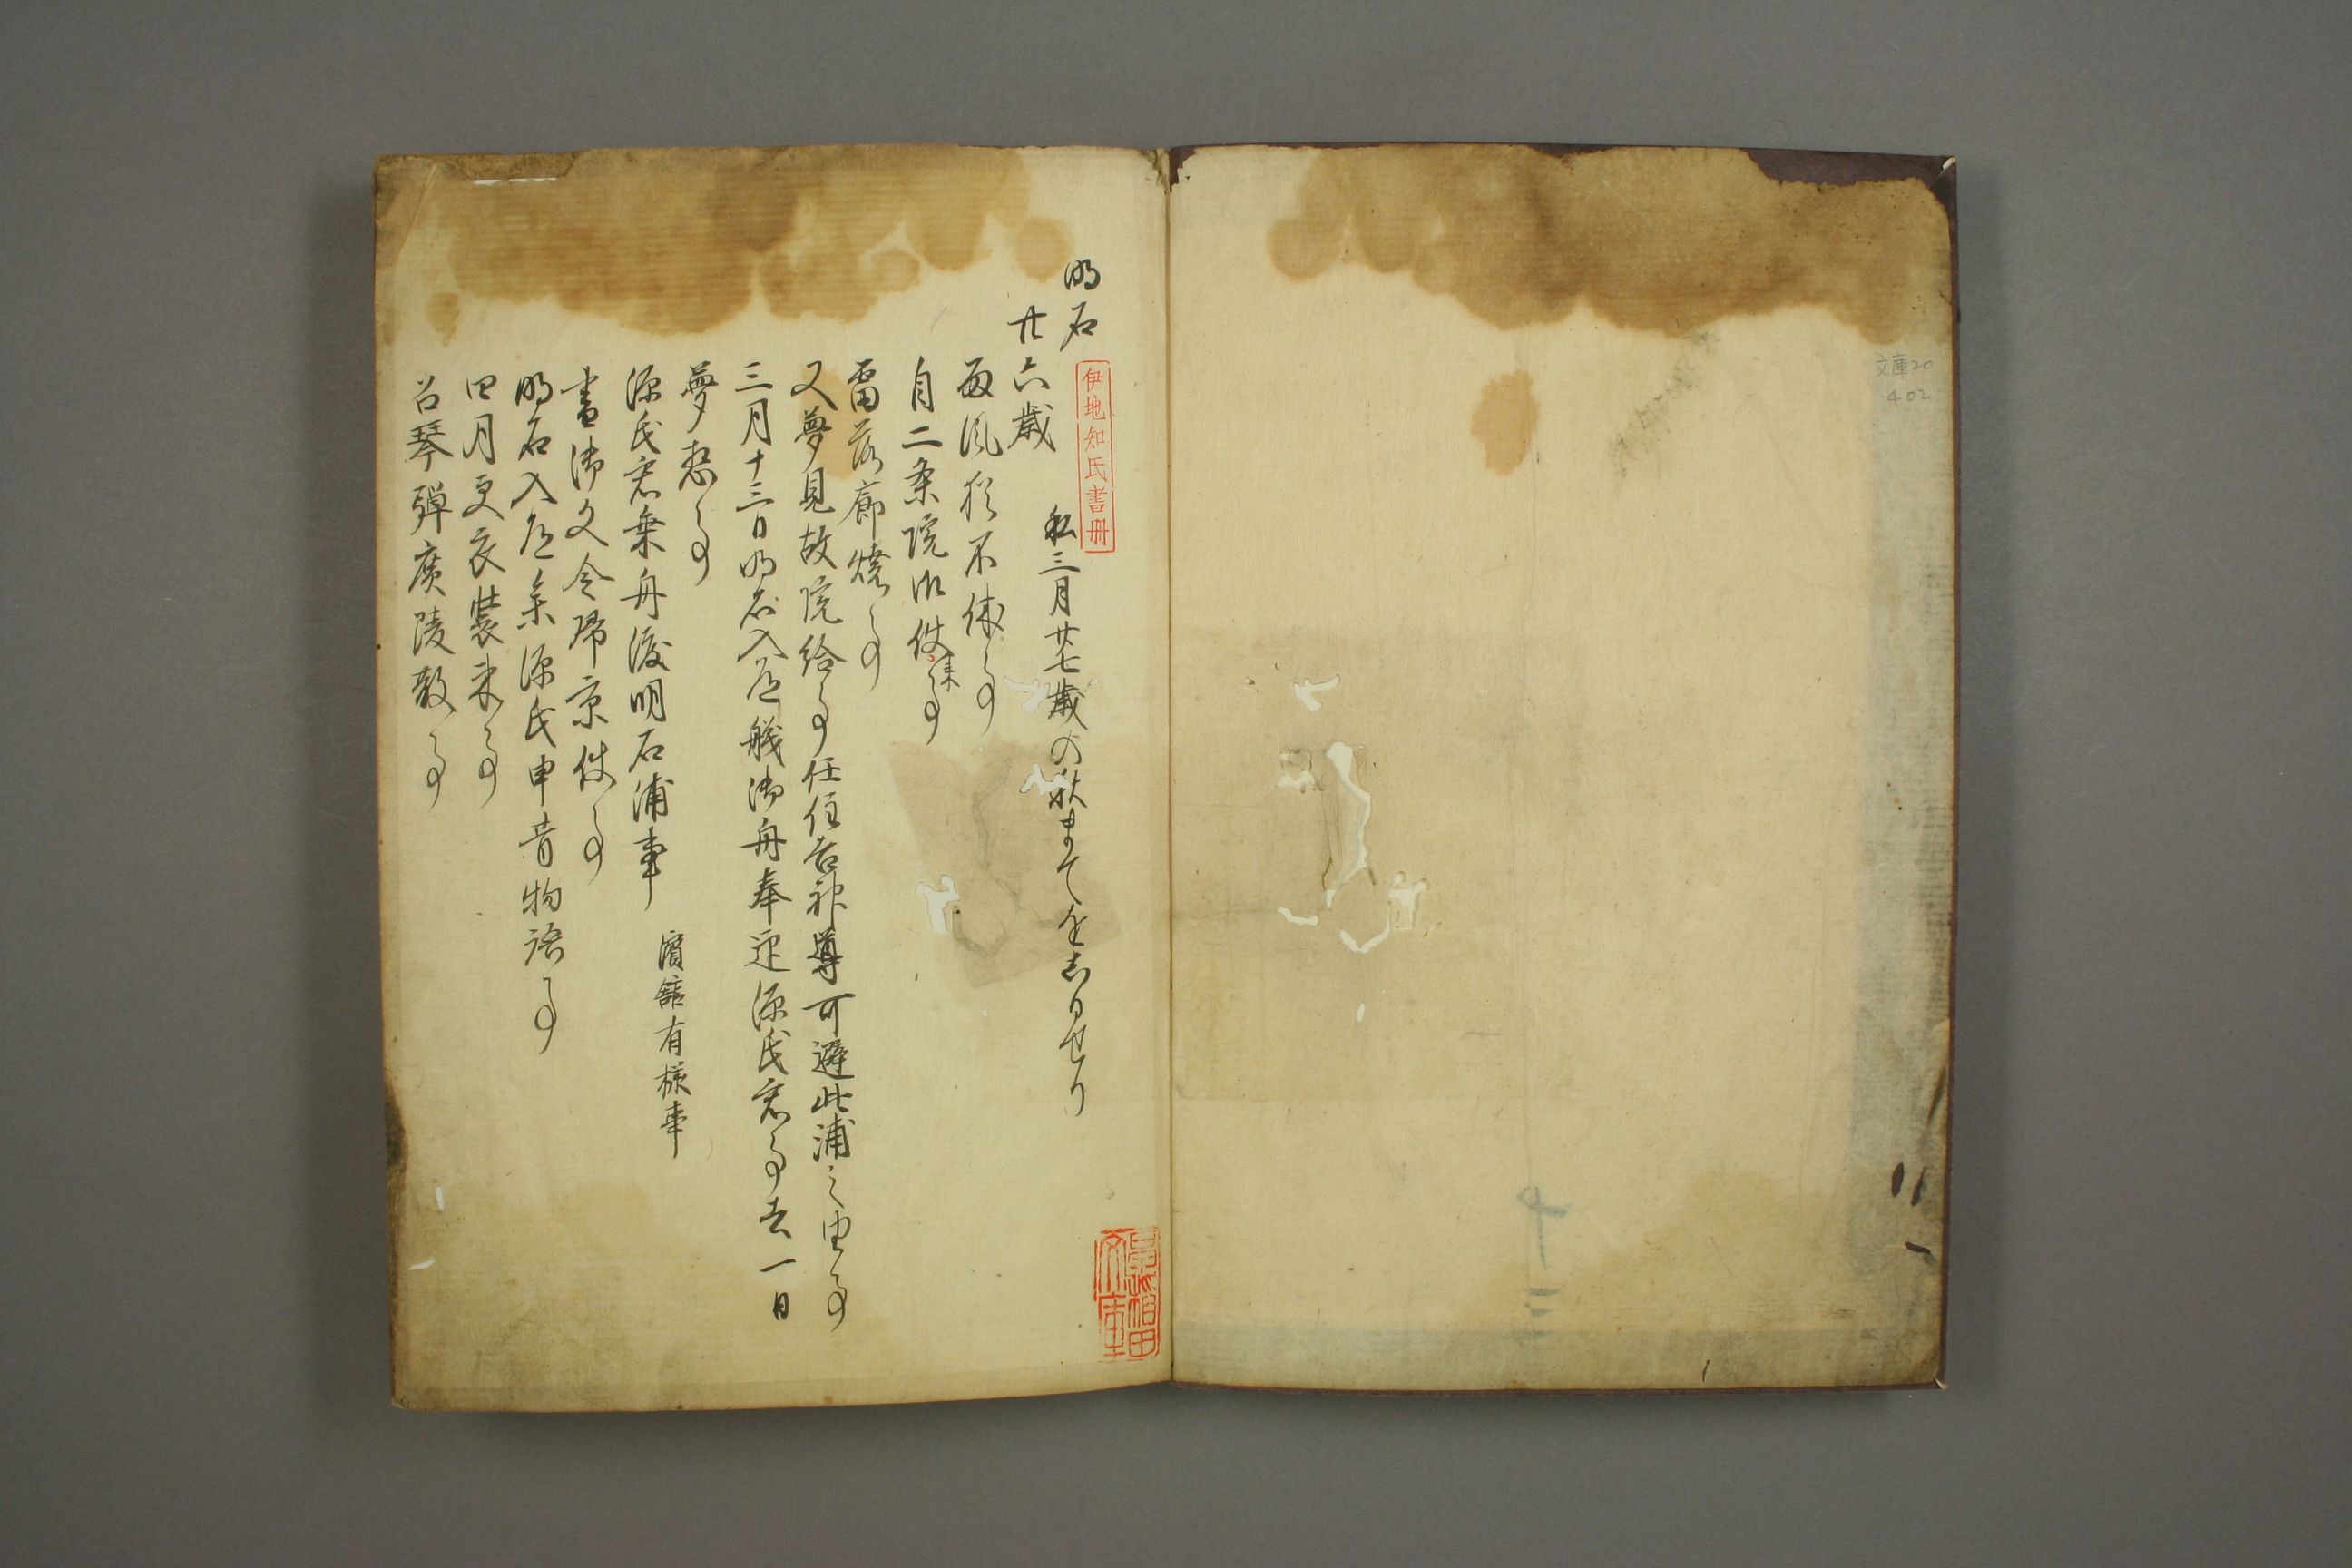 文庫20
402
十三
明石
伊地知氏書冊
廿六歳
私三月廿七歳の秋まてをしるせり
雨風猶不休事
自二条院御使来事
雷落廊焼事
又夢見故院給事任住吉神導可避此浦之由事
三月十三日明石入道艤御舟奉迎源氏君事去一日
夢想事
源氏君乗舟渡明石浦事
濱舘有様事
書御文令帰京使事
明石入道参源氏申昔物語事
四月更衣装束事
召琴弾廣陵散事